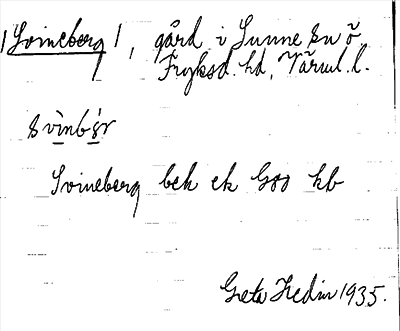 /Svineberg/, gård i Sunne sn ö.
Fryksd. hd, Värml. l.
svinbär
Svineberg bek ek Goo kb
Greta Hedin 1935.